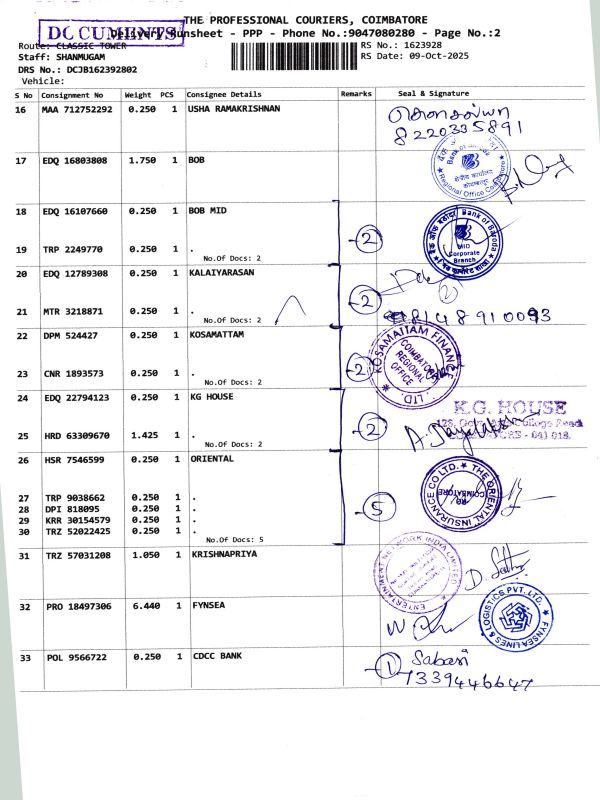 THE PROFESSIONAL COURIERS, COIMBATORE
DOCUMENTS
Delivery Runsheet - PPP - Phone No.:9047080280 - Page No.:2
Route: CLASSIC TOWER RS No.: 1623928
Staff: SHANMUGAM RS Date: 09-Oct-2025
DRS No.: DCJB162392802
Vehicle:
S No Consignment No Weight PCS Consignee Details Remarks Seal & Signature
16 MAA 712752292 0.250 1 USHA RAMAKRISHNAN
8220335891
17 EDQ 16803808 1.750 1 BOB
Bank of
क्षेत्रीय कार्यालय
Regional Office Coimbatore
18 EDQ 16107660 0.250 1 BOB MID
2
Bank of Baroda
MID
Corporate
Branch
19 TRP 2249770 0.250 1 .
No.Of Docs: 2
20 EDQ 12789308 0.250 1 KALAIYARASAN
2
2
21 MTR 3218871 0.250 1 .
No.Of Docs: 2
8148910093
22 DPM 524427 0.250 1 KOSAMATTAM
2
KOSAMATTAM FINANCE LTD.
COIMBATORE
REGIONAL
OFFICE
23 CNR 1893573 0.250 1 .
No.Of Docs: 2
24 EDQ 22794123 0.250 1 KG HOUSE
2
K.G. HOUSE
College Road
- 641 018.
25 HRD 63309670 1.425 1 .
No.Of Docs: 2
26 HSR 7546599 0.250 1 ORIENTAL
5
THE ORIENTAL INSURANCE CO LTD.
COIMBATORE
27 TRP 9038662 0.250 1 .
28 DPI 818095 0.250 1 .
29 KRR 30154579 0.250 1 .
30 TRZ 52022425 0.250 1 .
No.Of Docs: 5
31 TRZ 57031208 1.050 1 KRISHNAPRIYA
ENTERTAINMENT NETWORK INDIA LIMITED
32 PRO 18497306 6.440 1 FYNSEA
FYNSEA LINES & LOGISTICS PVT. LTD.
33 POL 9566722 0.250 1 CDCC BANK
1 Sabari
7339446647